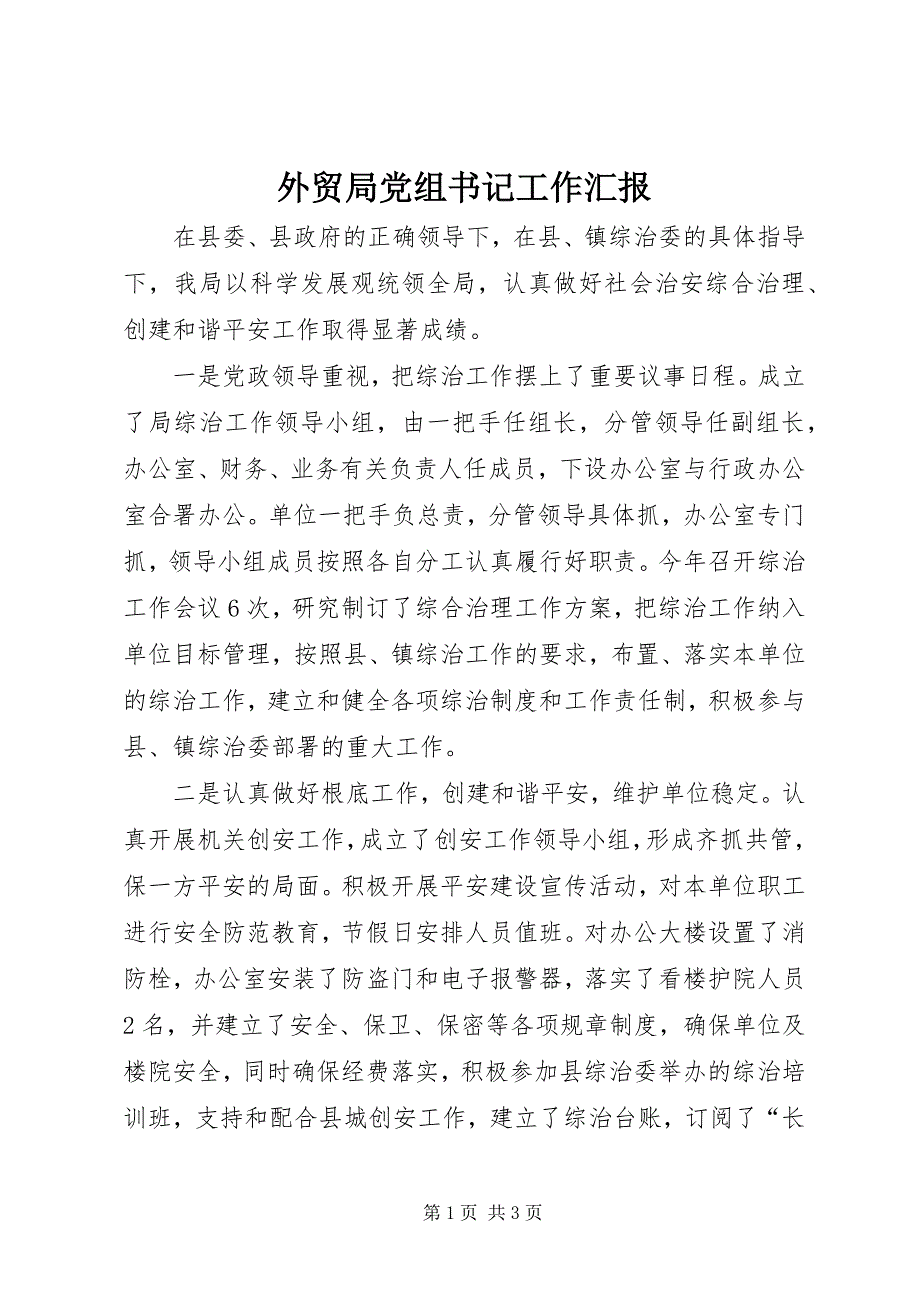 外贸局党组书记工作汇报
在县委、县政府的正确领导下，在县、镇综治委的具体指导
下，我局以科学发展观统领全局，认真做好社会治安综合治理、
创建和谐平安工作取得显著成绩。
一是党政领导重视，把综治工作摆上了重要议事日程。成立
了局综治工作领导小组，由一把手任组长，分管领导任副组长，
办公室、财务、业务有关负责人任成员，下设办公室与行政办公
室合署办公。单位一把手负总责，分管领导具体抓，办公室专门
抓，领导小组成员按照各自分工认真履行好职责。今年召开综治
工作会议 6 次，研究制订了综合治理工作方案，把综治工作纳入
单位目标管理，按照县、镇综治工作的要求，布置、落实本单位
的综治工作，建立和健全各项综治制度和工作责任制，积极参与
县、镇综治委部署的重大工作。
二是认真做好根底工作，创建和谐平安，维护单位稳定。认
真开展机关创安工作，成立了创安工作领导小组，形成齐抓共管，
保一方平安的局面。积极开展平安建设宣传活动，对本单位职工
进行安全防范教育，节假日安排人员值班。对办公大楼设置了消
防栓，办公室安装了防盗门和电子报警器，落实了看楼护院人员
2 名，并建立了安全、保卫、保密等各项规章制度，确保单位及
楼院安全，同时确保经费落实，积极参加县综治委举办的综治培
训班，支持和配合县城创安工作，建立了综治台账，订阅了“长
第 1 页 共 3 页